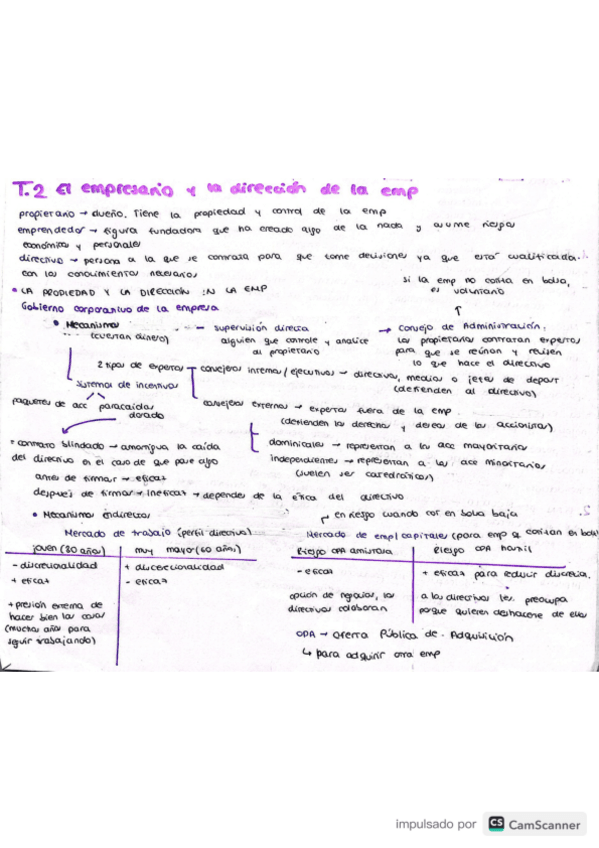 T.2 El empresario y la dirección de la emp
propietario → dueño. Tiene la propiedad y control de la emp
emprendedor → figura fundadora que ha creado algo de la nada y asume riesgos
económicos y personales
directivo → persona a la que se contrata para que tome decisiones ya que está cualificada.
con los conocimientos necesarios
si la emp no cotiza en bolsa,
es voluntario
• LA PROPIEDAD Y LA DIRECCIÓN EN LA EMP
Gobierno corporativo de la empresa
• Mecanismos
(cuestan dinero)
→ supervisión directa
alguien que controle y analice
al propietario
→ Consejo de Administración.
Los propietarios contratan expertos
para que se reúnan y revisen
lo que hace el directivo
2 tipos de expertos
consejeros internos / ejecutivos → directivos, medios o jefes de depart
(defienden al directivo)
sistemas de incentivos
paquetes de acc paracaídas
dorado
consejeros externos → expertos fuera de la emp.
(defienden los derechos y deseos de los accionistas)
= contrato blindado → amortigua la caída
del directivo en el caso de que pase algo
dominicales → representan a los acc mayoritarios
independientes → representan a los acc minoritarios
(suelen ser catedráticos)
antes de firmar → eficaz
después de firmar → ineficaz → depende de la ética del directivo
• Mecanismos indirectos
en riesgo cuando cot en bolsa baja
Mercado de trabajo (perfil directivo)
Mercado de emp/capitales (para emp q cotizan en bolsa)
joven (30 años)
muy mayor (60 años)
- discrecionalidad
+ discrecionalidad
+ eficaz
- eficaz
+ presión externa de
hacer bien las cosas
(muchos años para
seguir trabajando)
Riesgo OPA amistosa
Riesgo OPA hostil
- eficaz
+ eficaz para reducir discrecio.
opción de negocios, los
directivos colaboran
a los directivos les preocupa
porque quieren deshacerse de ellos
OPA → Oferta Pública de Adquisición
↳ para adquirir otra emp
impulsado por CS CamScanner